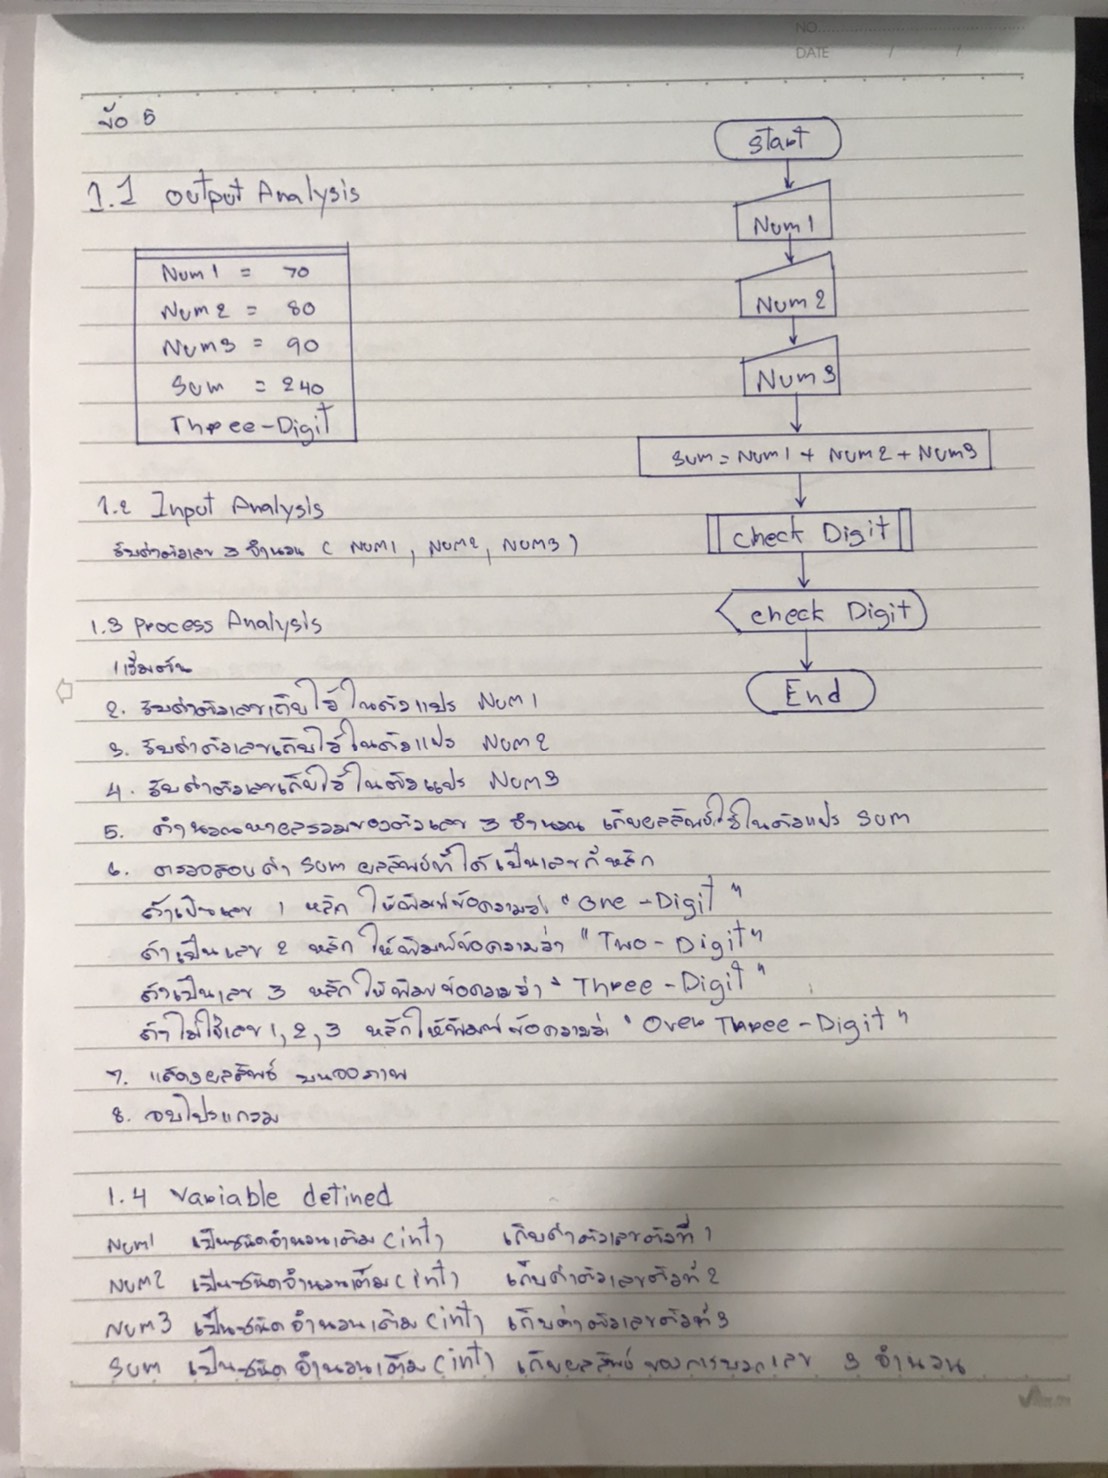 NO.
DATE / /
ข้อ 5
1.1 Output Analysis
Num1 = 70
Num2 = 80
Num3 = 90
Sum = 240
Three-Digit
1.2 Input Analysis
รับค่าตัวเลข 3 จำนวน ( Num1, Num2, Num3 )
1.3 Process Analysis
1.เริ่มต้น
2. รับค่าตัวเลขเก็บไว้ในตัวแปร Num1
3. รับค่าตัวเลขเก็บไว้ในตัวแปร Num2
4. รับค่าตัวเลขเก็บไว้ในตัวแปร Num3
5. คำนวณหาผลรวมของตัวเลข 3 จำนวน เก็บผลลัพธ์ไว้ในตัวแปร Sum
6. ตรวจสอบค่า Sum ผลลัพธ์ที่ได้เป็นเลขกี่หลัก
ถ้าเป็นเลข 1 หลัก ให้พิมพ์ข้อความว่า "One-Digit"
ถ้าเป็นเลข 2 หลัก ให้พิมพ์ข้อความว่า "Two-Digit"
ถ้าเป็นเลข 3 หลัก ให้พิมพ์ข้อความว่า "Three-Digit"
ถ้าไม่ใช่เลข 1,2,3 หลักให้พิมพ์ข้อความว่า "Over Three-Digit"
7. แสดงผลลัพธ์ บนจอภาพ
8. จบโปรแกรม
1.4 Variable defined
Num1 เป็นชนิดจำนวนเต็ม(int) เก็บค่าตัวเลขตัวที่ 1
Num2 เป็นชนิดจำนวนเต็ม(int) เก็บค่าตัวเลขตัวที่ 2
Num3 เป็นชนิดจำนวนเต็ม(int) เก็บค่าตัวเลขตัวที่ 3
Sum เป็นชนิดจำนวนเต็ม(int) เก็บผลลัพธ์ ของการบวกเลข 3 จำนวน
Start
Num1
Num2
Num3
Sum = Num1 + Num2 + Num3
Check Digit
Check Digit
End